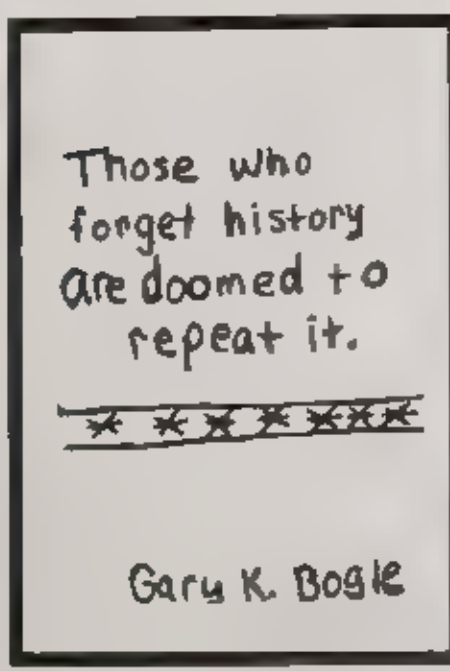 Those who
forget history
are doomed to
repeat it.
Gary K. Bogle